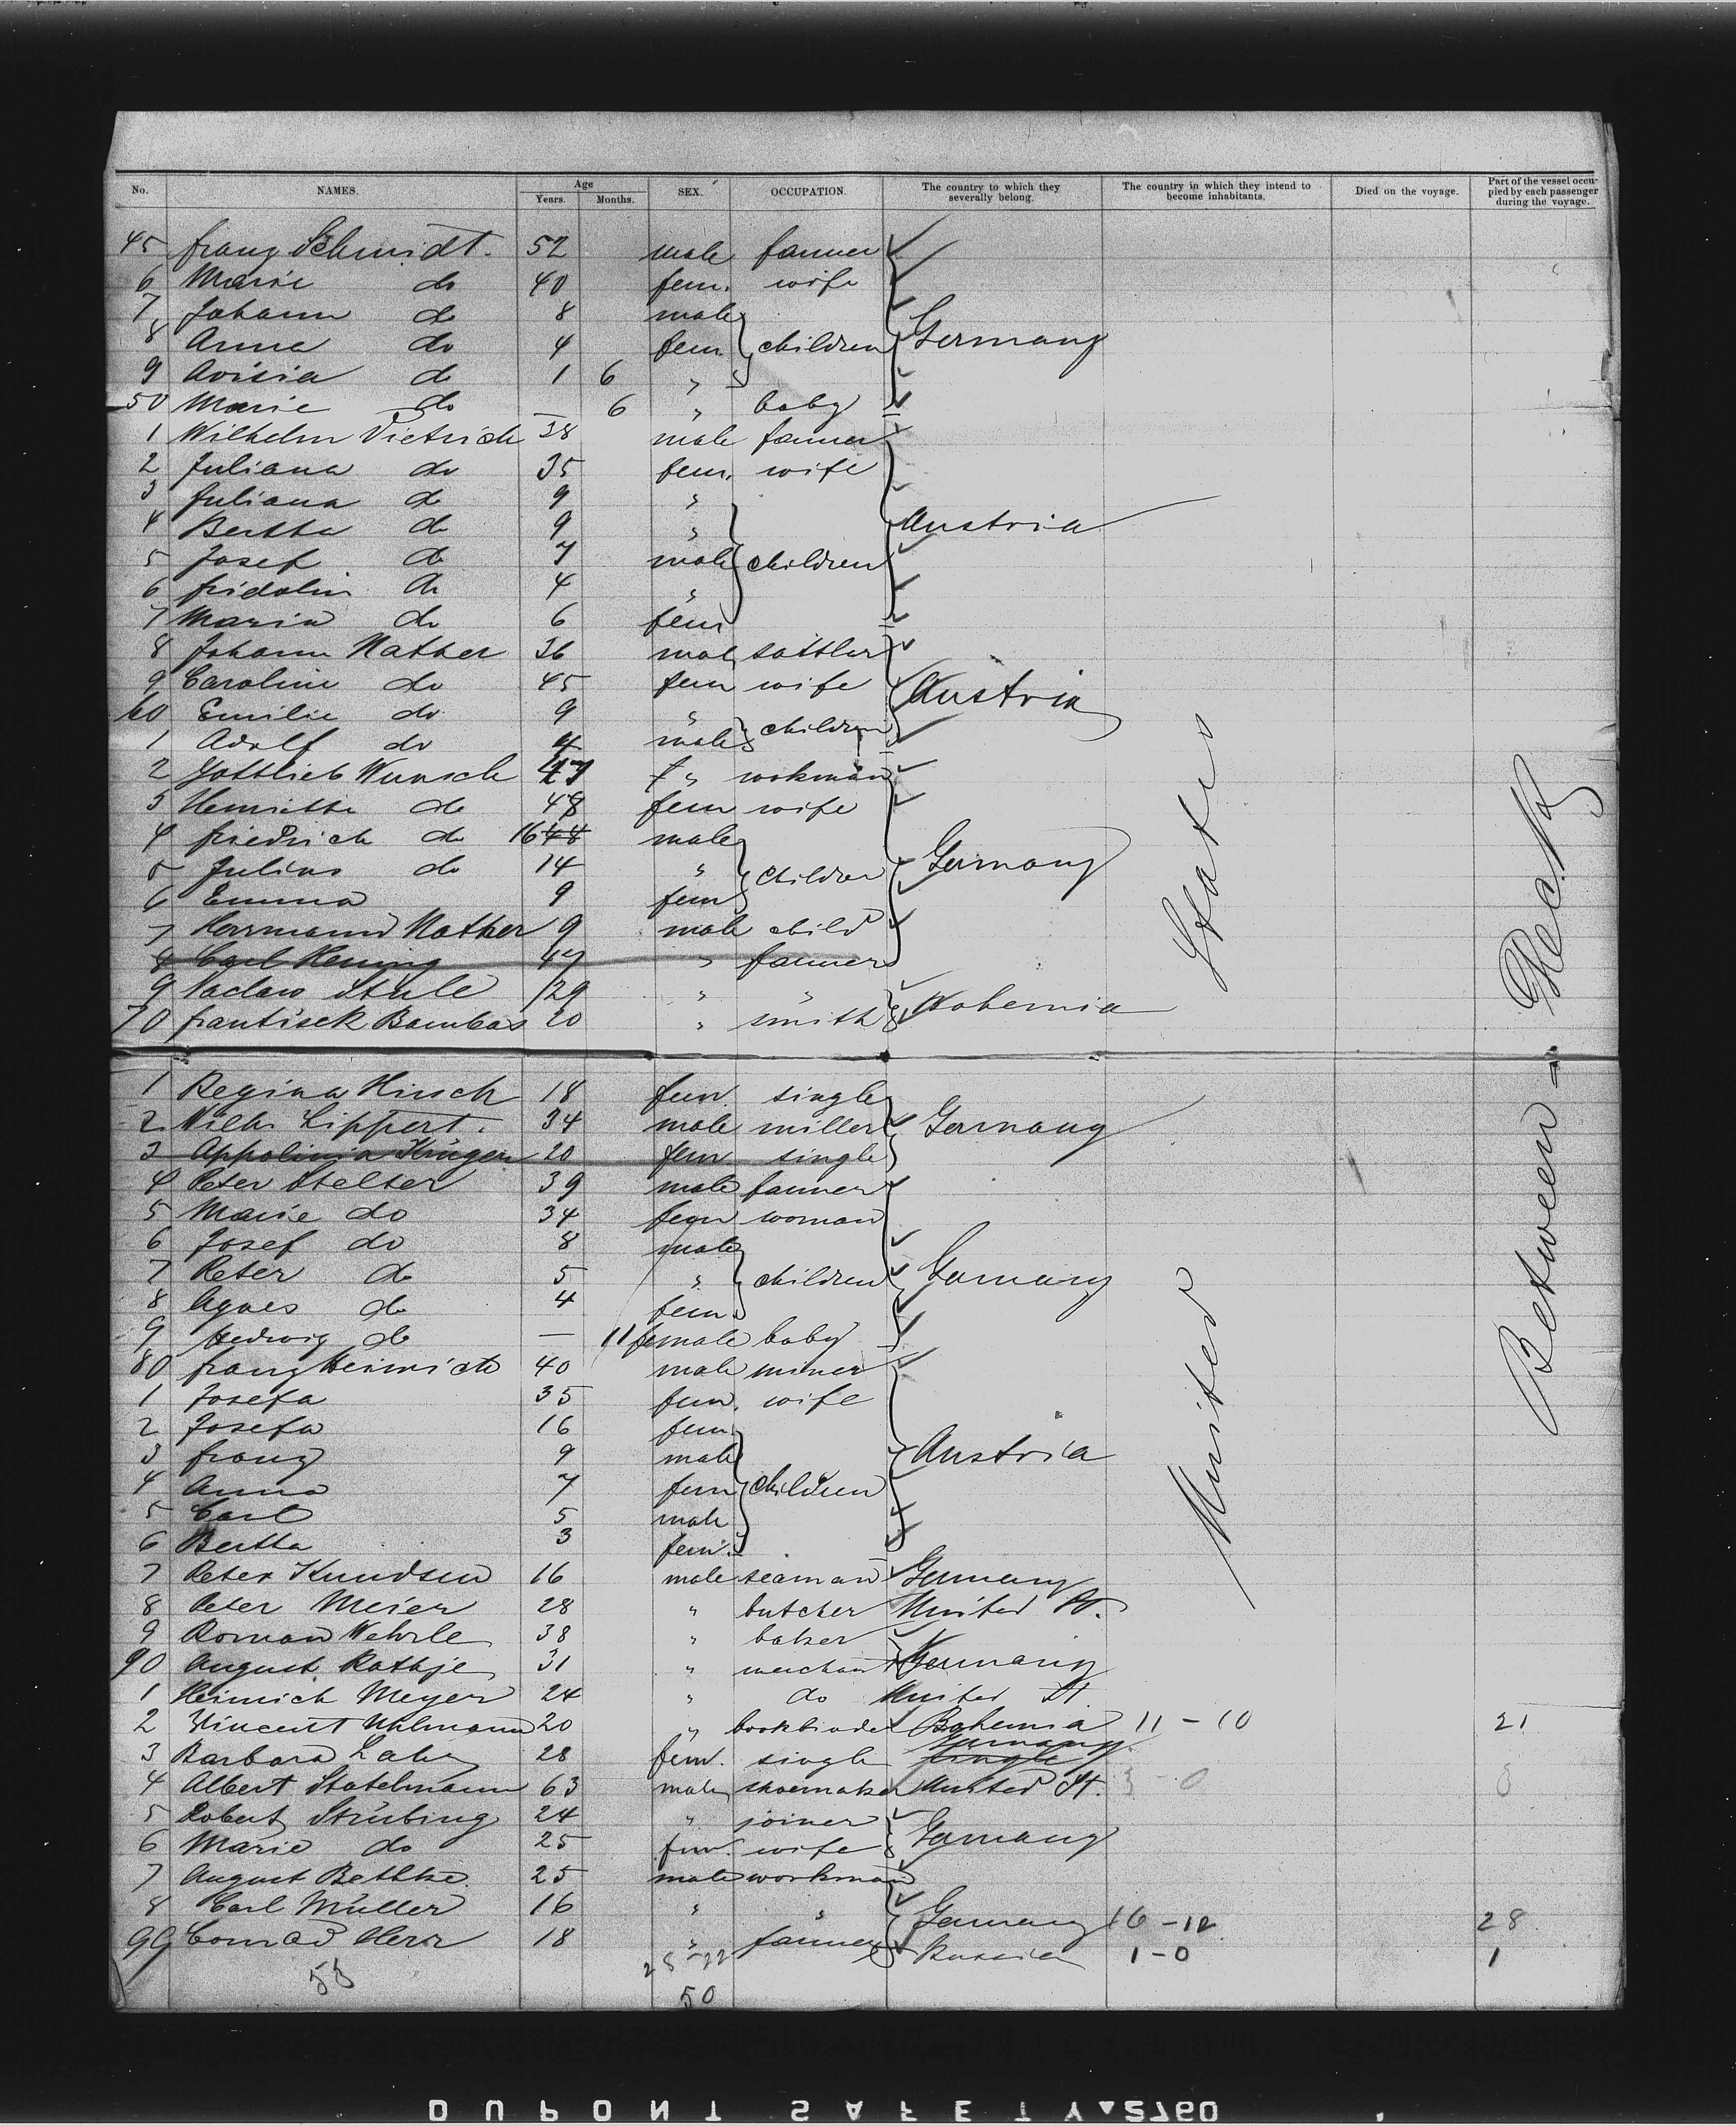 No. NAMES. Age Years. Months. SEX. OCCUPATION. The country to which they severally belong. The country in which they intend to become inhabitants. Died on the voyage. Part of the vessel occupied by each passenger during the voyage.
45 Franz Schmidt. 52 male farmer
6 Marie do 40 fem. wife
7 Johann do 8 male
8 Anna do 4 fem children Germany
9 do 1 6 "
50 Marie do — 6 " baby
1 Wilhelm Dietrich 38 male farmer
2 Juliana do 35 fem. wife
3 Juliana do 9 "
4 Bertha do 9 " Austria
5 Josef do 7 male children
6 Fridolin do 4 "
7 Maria do 6 fem
8 Johann Nather 36 male sattler
9 Caroline do 45 fem wife Austria
60 Emilie do 9 " children
1 Adolf do 4 male
2 Gottlieb Wunsch 47 " workman
3 Henriette do 48 fem wife
4 Friedrich do 16 48 male
5 Julius do 14 " children Germany
6 Emma 9 fem
7 Herrmann Nather 9 male child
8 Carl Hennig 47 " farmer
9 Vaclav Stule 29 " " Bohemia
70 Frantisek Bambas 20 " smith
1 Regina Hirsch 18 fem. single
2 Wilh. Lippert. 34 male miller Germany
3 Appolinia Krügen 20 fem single
4 Peter Stelter 39 male farmer
5 Marie do 34 fem woman
6 Josef do 8 male
7 Peter do 5 " children Germany
8 Agnes do 4 fem.
9 Hedwig do — 11 female baby
80 Franz Heinrich 40 male miner
1 Josefa 35 fem. wife
2 Josefa 16 fem
3 Franz 9 male Austria
4 Anna 7 fem children
5 Carl 5 male
6 Bertha 3 fem.
7 Peter Knudsen 16 male seaman Germany
8 Peter Meier 28 " butcher United St.
9 Roman Wehrle 38 " baker
90 August Rathje 31 " merchant Germany
1 Heinrich Meyer 24 " do United St.
2 Vincent Uhlmann 20 " bookbinder Bohemia 11 - 10 21
3 Barbara 28 fem. single Germany single
4 Albert Statelmann 63 male shoemaker United St. 3 - 0
5 Robert Strübing 24 " joiner
6 Marie do 25 fem. wife Germany
7 August Bethke 25 male workman
8 Carl Müller 16 " " Germany 16 - 12 28
99 Conrad Herr 18 " farmer Russia 1 - 0 1
28-22
50
United States
Between Deck
DUPONT SAFETY 2760